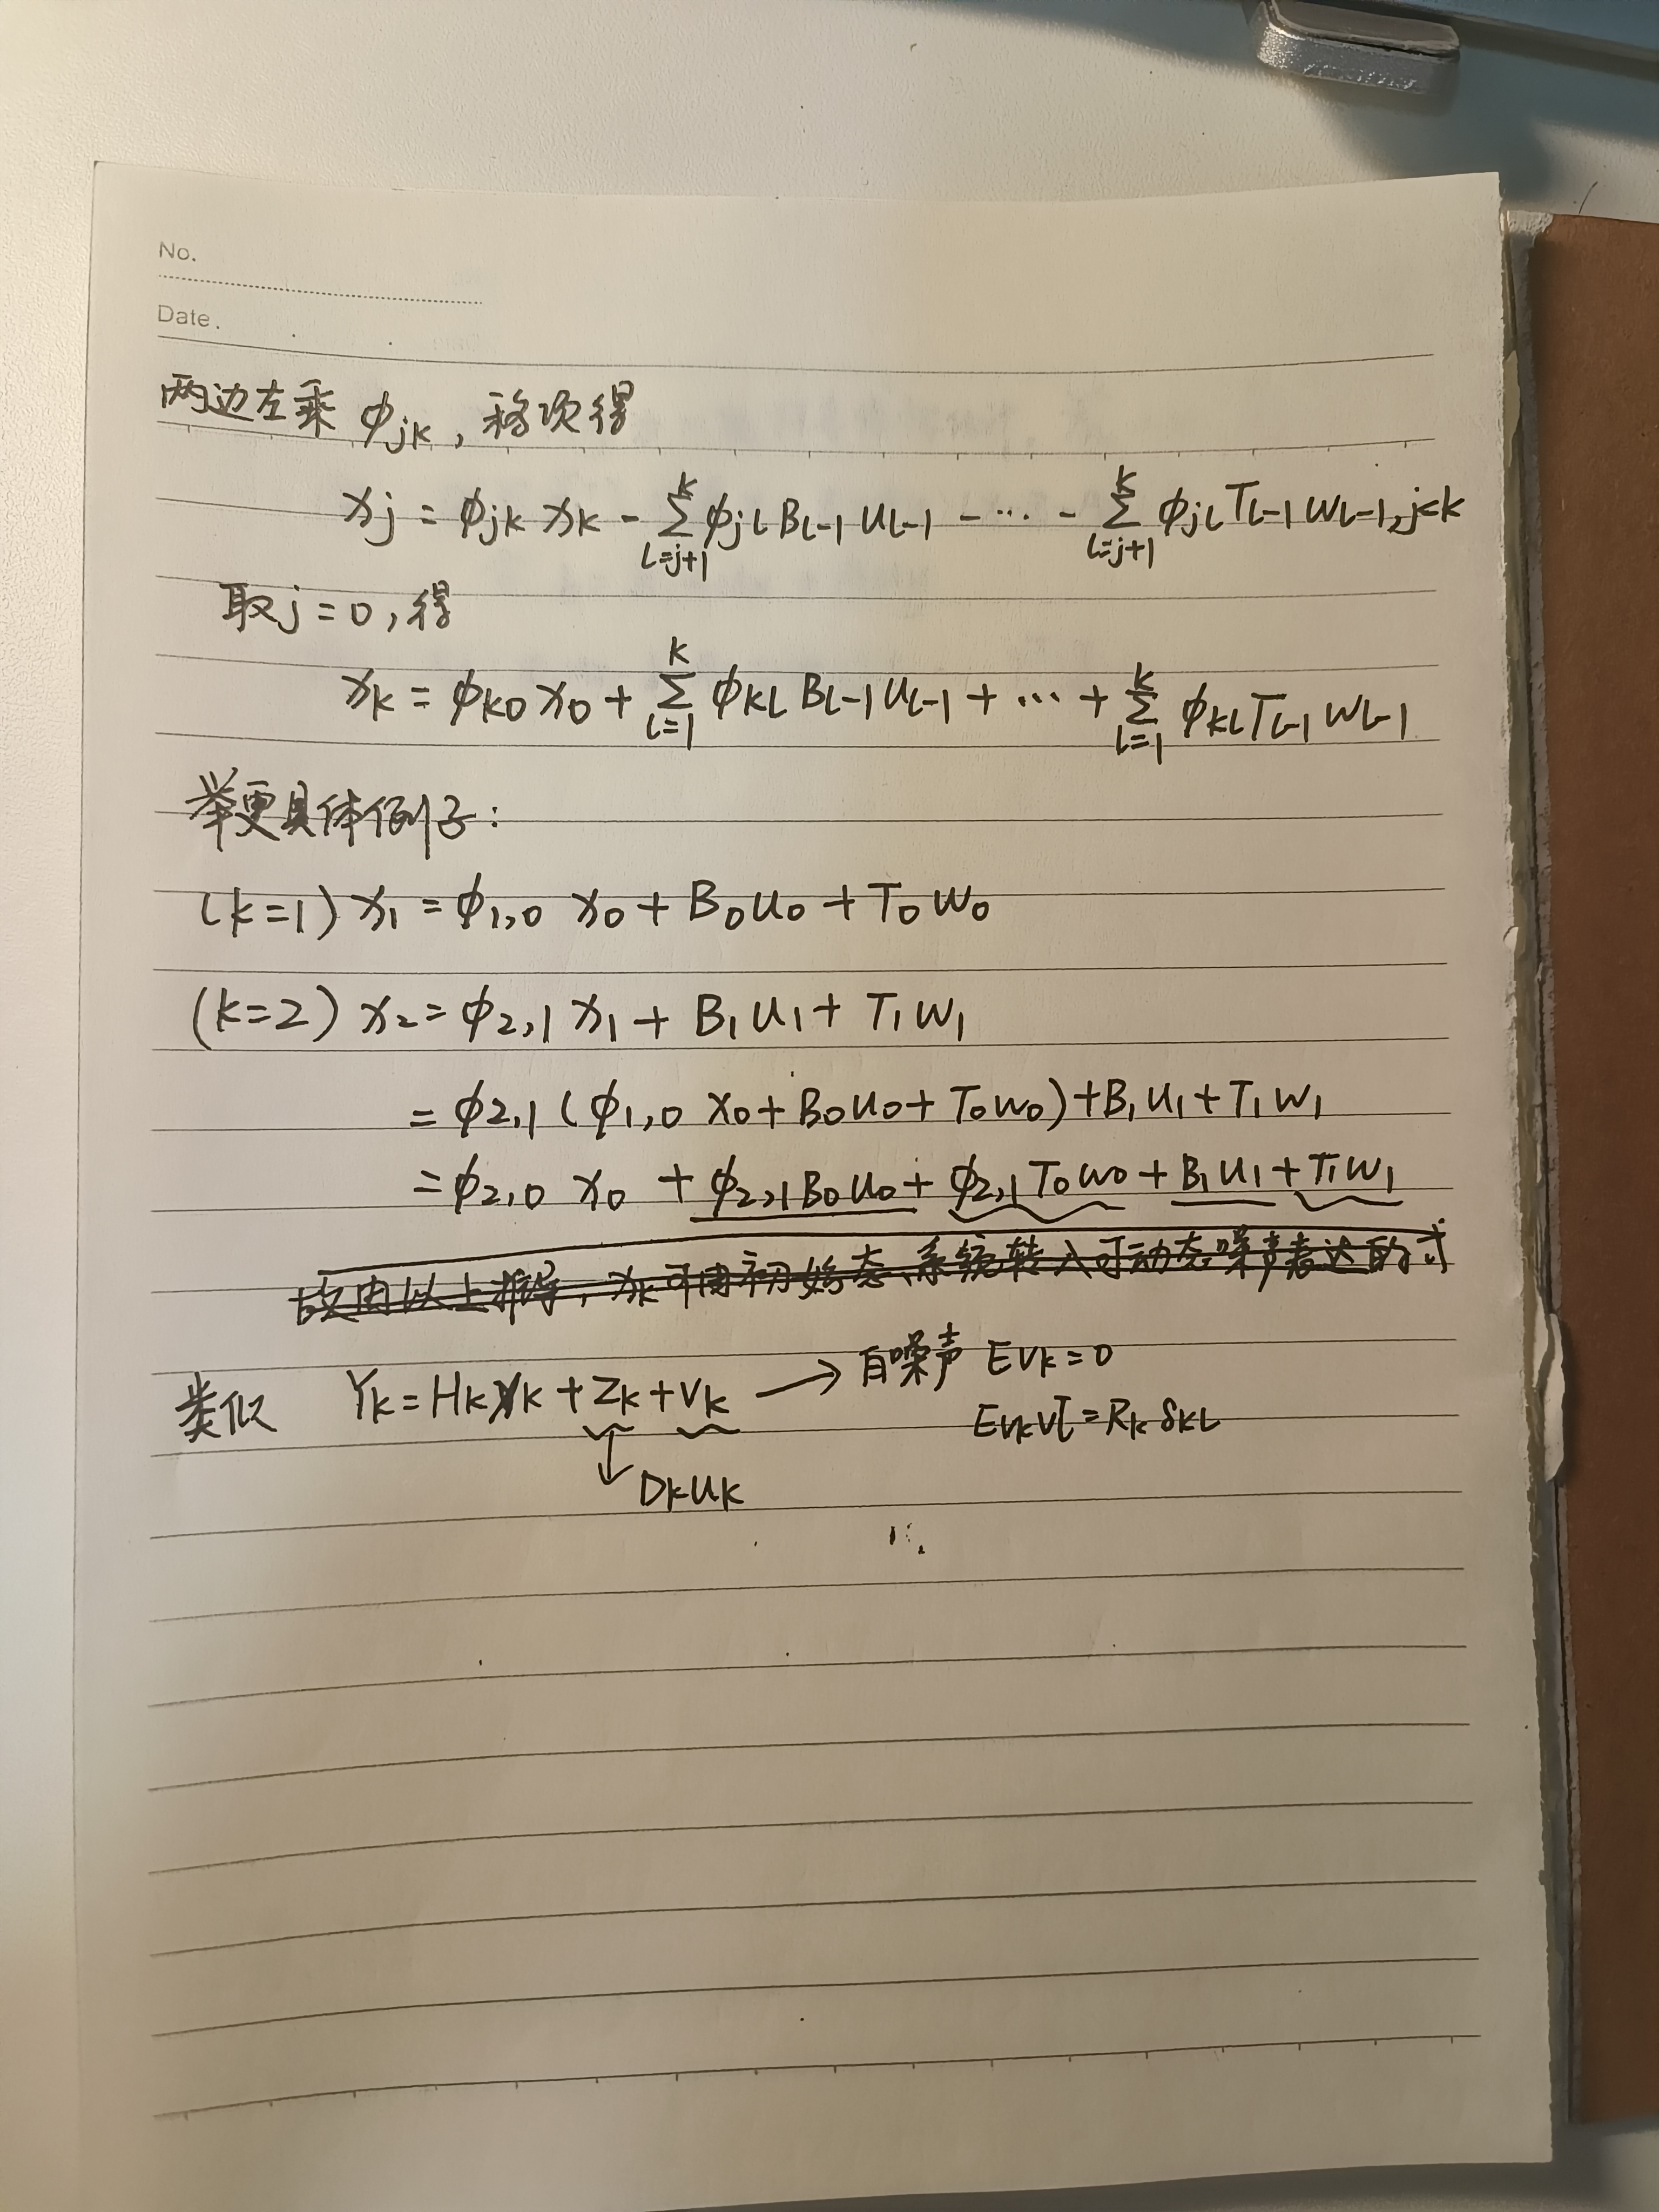 No.
Date.
两边左乘 ϕjk，移项得
xj = ϕjk xk - ∑_{l=j+1}^{k} ϕjl Bl-1 ul-1 - ··· - ∑_{l=j+1}^{k} ϕjl Tl-1 wl-1, j<k
取j=0，得
xk = ϕk0 x0 + ∑_{l=1}^{k} ϕkl Bl-1 ul-1 + ··· + ∑_{l=1}^{k} ϕkl Tl-1 wl-1
举更具体例子：
(k=1) x1 = ϕ1,0 x0 + B0u0 + T0w0
(k=2) x2 = ϕ2,1 x1 + B1u1 + T1w1
= ϕ2,1 (ϕ1,0 x0 + B0u0 + T0w0) + B1u1 + T1w1
= ϕ2,0 x0 + ϕ2,1B0u0 + ϕ2,1T0w0 + B1u1 + T1w1
故由以上推导，xk可由初始态、系统转入可动态噪声表达的式
类似 Yk = Hkxk + Zk + Vk → 白噪声 EVk = 0
EVkVlᵀ = Rk δkl
↓ Dkuk